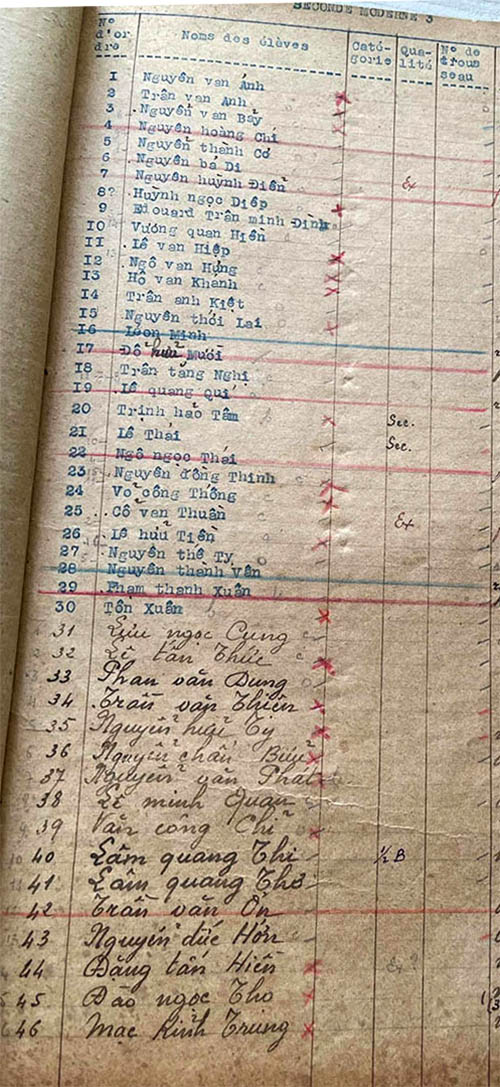 SECONDE MODERNE 3
N° d'or dre Noms des élèves Caté- gorie Qua- lité N° de trous seau
1 Nguyễn van Ánh
2 Trân van Anh
3 Nguyễn van Bảy
4 Nguyễn hoàng Chí
5 Nguyễn thành Cơ
6 Nguyễn bá Di
7 Nguyễn huỳnh Điển Ex
8? Huỳnh ngọc Diệp
9 Edouard Trân minh Đình
10 Vương quan Hiển
11 Lê van Hiệp
12 Ngô van Hưng
13 Hồ van Khanh
14 Trân anh Kiệt
15 Nguyễn thới Lai
16 Léon Minh
17 Đổ hửu Mười
18 Trân tăng Nghị
19 Lê quang Quí
20 Trịnh hảo Tâm Sec.
21 Lê Thái Sec.
22 Ngô ngọc Thái
23 Nguyễn đồng Thinh
24 Võ công Thống
25 Cổ van Thuần Ex
26 Lê hửu Tiền
27 Nguyễn thế Ty
28 Nguyễn thành Vân
29 Pham thanh Xuân
30 Tôn Xuân
31 Lưu ngọc Cung
32 Lê tấn Thức
33 Phan văn Dung
34 Trần văn Thiên
35 Nguyễn Ty
36 Nguyễn chấn Bửu
37 Nguyễn văn Phát
38 Lê minh Quan
39 Văn công Chí
40 Lâm quang Thi ½ B
41 Lâm quang Thơ
42 Trần văn Ơn
43 Nguyễn đức Hớn
44 Đặng tấn Hiển Ex ?
45 Đào ngọc Thọ
46 Mạc Kinh Trung